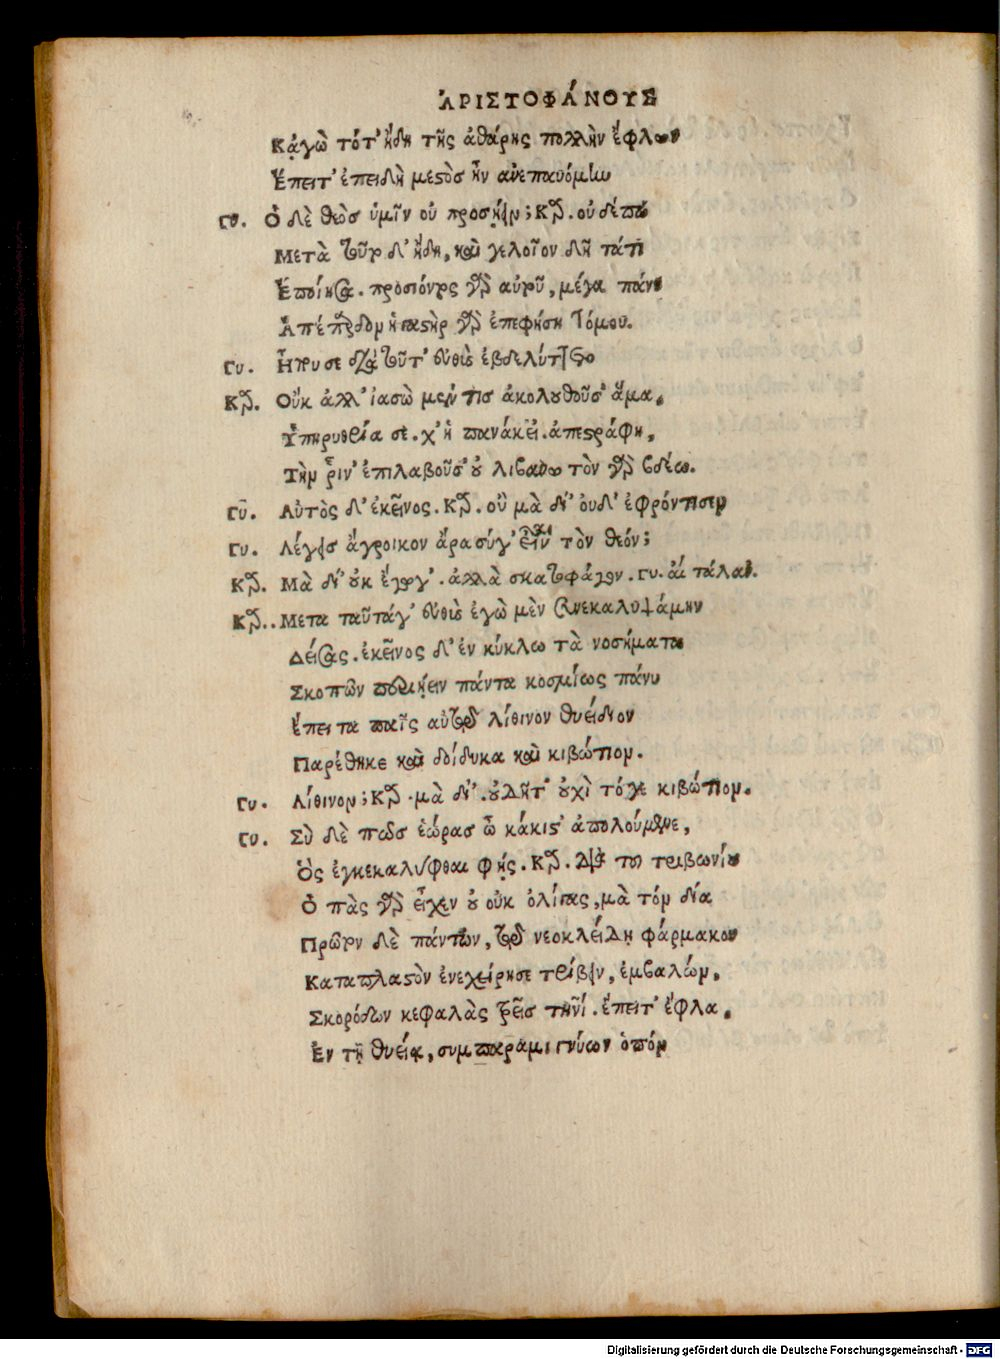 ἈΡΙΣΤΟΦΆΝΟΥΣ
Κᾀγὼ τότ' ἤδη τῆς ἀθάρης πολλὴν ἔφλων
Ἔπειτ' ἐπειδὴ μεστὸσ ἦν ἀνεπαυόμην
Γυ. Ὁ δὲ θεὸσ ὑμῖν οὐ προσῄειν; Κα. οὐδέπω
Μετὰ ταῦτα δ' ἤδη, καὶ γελοῖον δῆτά τι
Ἐποίησα. προσιόντος γὰρ αὐτοῦ, μέγα πάνυ
Ἀπέπαρδον ἡ γαστὴρ γὰρ ἐπεφύση τό μου.
Γυ. Ἦ που σε διὰ τοῦτ' εὐθὺσ ἐβδελύττετο
Κα. Οὔκ ἀλλ' ἰασὼ μέν τισ ἀκολουθοῦσ' ἅμα.
Ὑπηρυθρία σε. χ' ἡ πανάκει. ἀπεστράφη,
Τὴν ῥῖν' ἐπιλαβοῦσ' οὐ λιβανω τὸν γὰρ βδέω.
Γυ. Αὐτὸς δ' ἐκεῖνος. Κα. οὐ μὰ δί' ὀυδ' ἐφρόντισεν
Γυ. Λέγεισ ἄγροικον ἄρα σύγ' εἶναι τὸν θεόν;
Κα. Μὰ δί' οὐκ ἔγωγ'. ἀλλὰ σκατοφάγον. Γυ. αἲ τάλαν.
Κα.. Μετα ταῦτάγ' εὐθὺσ ἐγὼ μὲν συνεκαλυψάμην
Δείσας. ἐκεῖνος δ' ἐν κύκλω τὰ νοσήματα
Σκοπῶν περιῄειν πάντα κοσμίως πάνυ
Ἔπειτα παῖς αὐτῷ λίθινον θυείδιον
Παρέθηκε καὶ δοίδυκα καὶ κιβώτιον.
Γυ. Λίθινον; Κα. μὰ δί'. οὐ δῆτ' οὐχὶ τό γε κιβώτιον.
Γυ. Σὺ δὲ πωσ ἑώρασ ὦ κάκιστ' ἀπολούμενε,
Ὃς ἐγκεκαλύφθαι φῄς. Κα. Διὰ του τριβωνίου
Ὀ πὰς γὰρ εἶχεν οὐ οὐκ ὀλίγας, μὰ τόν δία
Πρῶτον δὲ πάντων, τῷ νεοκλείδῃ φάρμακον
Καταπλαστὸν ἐνεχείρησε τρίβειν, ἐμβαλών,
Σκορόδων κεφαλὰς τρεῖσ τηνί. ἔπειτ' ἔφλα.
Ἐν τῇ θυείᾳ, συμπαραμιγνύων ὀπόν
Digitalisierung gefördert durch die Deutsche Forschungsgemeinschaft - DFG